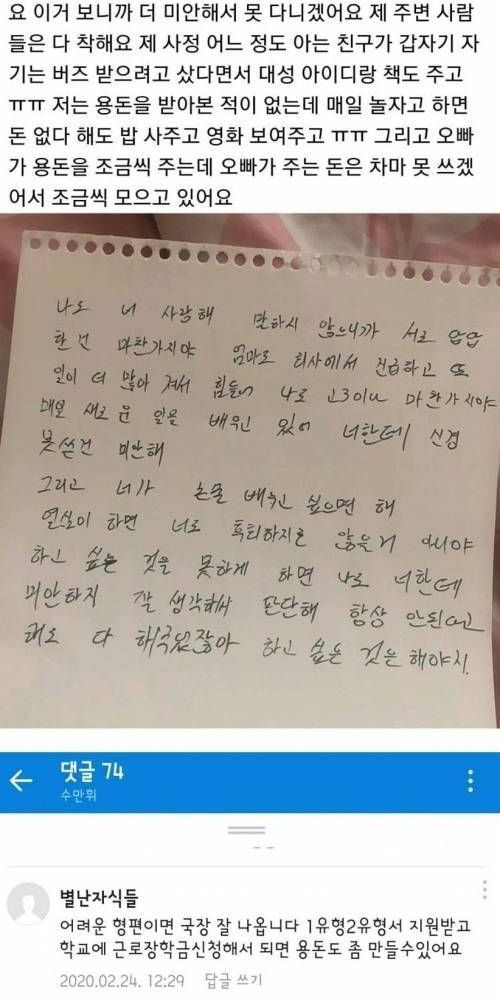 요 이거 보니까 더 미안해서 못 다니겠어요 제 주변 사람
들은 다 착해요 제 사정 어느 정도 아는 친구가 갑자기 자
기는 버즈 받으려고 샀다면서 대성 아이디랑 책도 주고
ㅠㅠ 저는 용돈을 받아본 적이 없는데 매일 놀자고 하면
돈 없다 해도 밥 사주고 영화 보여주고 ㅠㅠ 그리고 오빠
가 용돈을 조금씩 주는데 오빠가 주는 돈은 차마 못 쓰겠
어서 조금씩 모으고 있어요
나도 너 사랑해 말하지 않으니까 서로 답답
한 건 마찬가지야 엄마도 회사에서 진급하고 또
일이 더 많아 져서 힘들어 나도 고3이나 마찬가지야
매일 새로운 일을 배우고 있어 너한테 신경
못쓴건 미안해
그리고 너가 논술 배우고 싶으면 해
열심히 하면 너도 후회하지는 않을거 아니야
하고 싶은 것을 못하게 하면 나도 너한테
미안하지 잘 생각해서 판단해 항상 안된다고
해도 다 해줬잖아 하고 싶은 것은 해야지.
댓글 74
수만휘
별난자식들
어려운 형편이면 국장 잘 나옵니다 1유형2유형서 지원받고
학교에 근로장학금신청해서 되면 용돈도 좀 만들수있어요
2020.02.24. 12:29 답글 쓰기